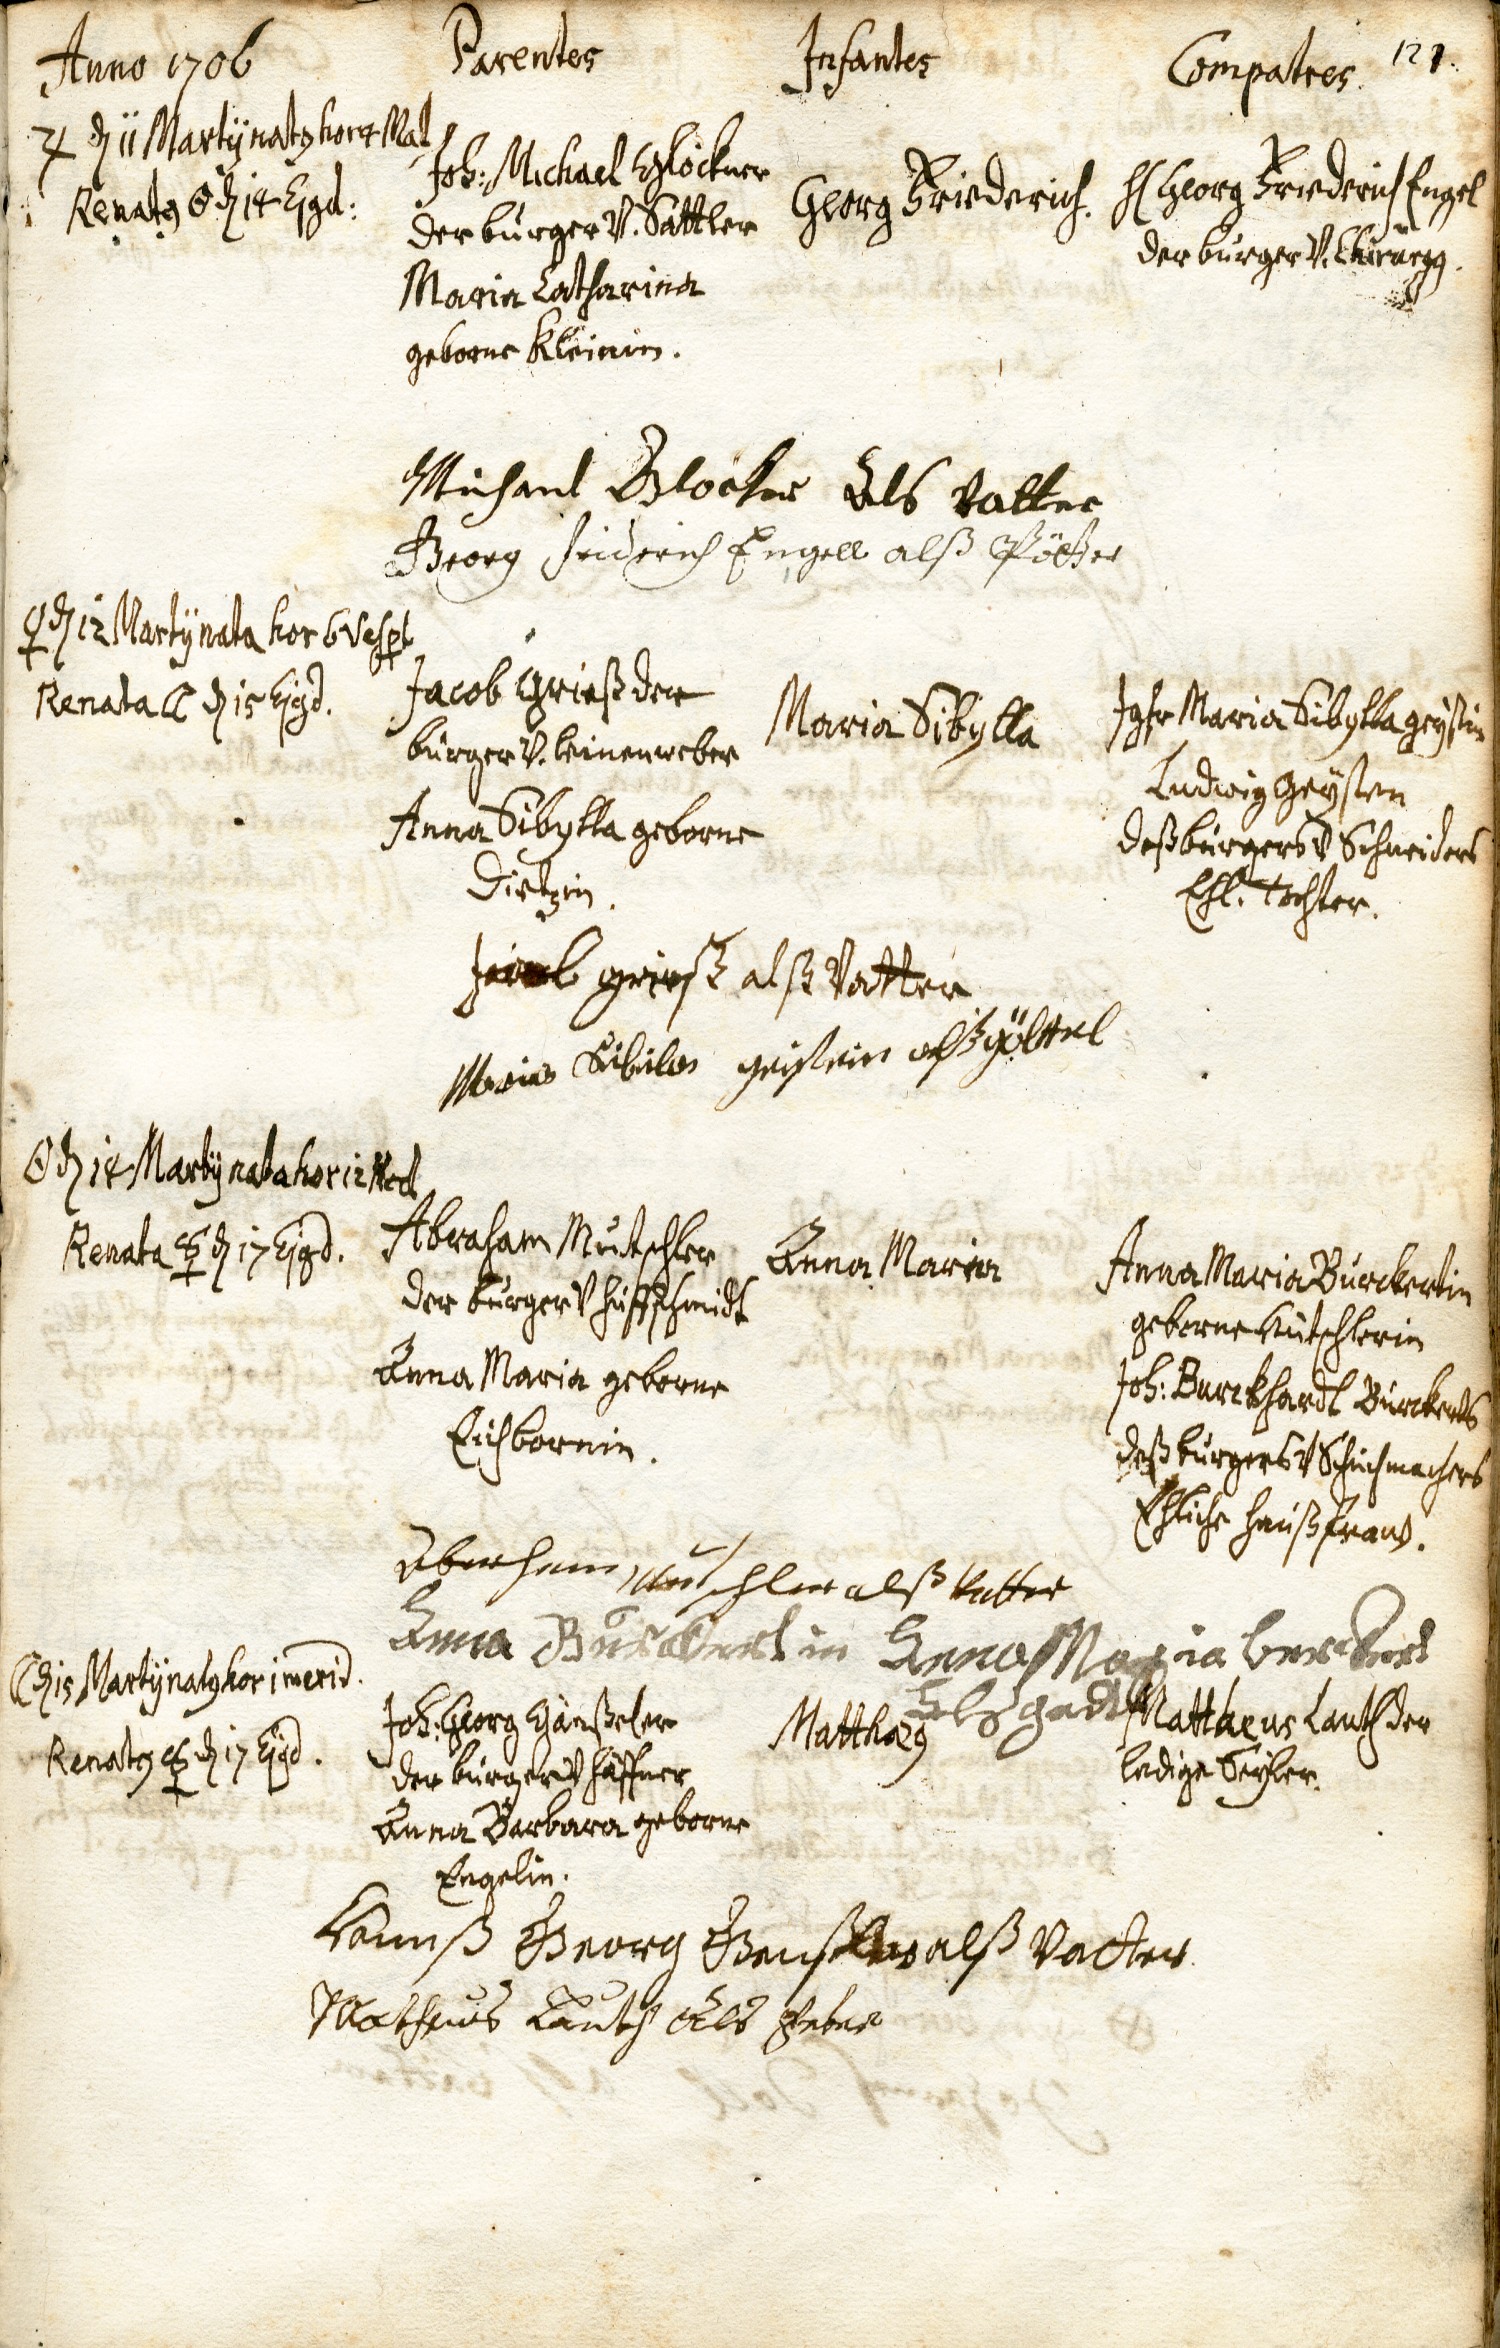 Anno 1706 Parentes Infantes Compatres. 121.
♃ d 11 Martÿ natq hor 4 Mat
Renatq ☉ d 14 Ejgd:
Joh: Michael Glöckner
der burger V. Sattler
Maria Catharina
geborne Kleinin.
Georg Friederich.
H Georg Friederich Engel
der burger V. Chirurgq.
Michael Glöckner Als Vatter
Georg friderich Engell alß Pötter
♀ d 12 Martÿ nata hor 6 Vespt
Renata ☾ d 15 Ejgd.
Jacob Grieß der
burger V. leinenweber
Anna Sibylla geborne
Dietzin.
Maria Sibylla
Jgfr Maria Sibylla geystin
Ludwig Geysten
deß burgers V Schneiders
Ehl. Tochter.
Jacob grieß alß Vatter
Maria Sibila geistein alß göttel
☉ d 14 Martÿ nata hor 12 Med
Renata ☿ d 17 Ejgd.
Abraham Mutschler
der burger V huffschmidt
Anna Maria geborne
Eichbornin.
Anna Maria
Anna Maria Burckertin
geborne Mutschlerin
Joh: Burckhardt Burckerts
deß burgers V Schuchmachers
Ehliche haußfraw.
Aberham Mutschler alß Vatter
Anna Burckert in Anna Maria burckert
Als gadt
☾ d 15 Martÿ natq hor 1 merid.
Renatq ☿ d 17 Ejgd.
Joh: Georg Gänßeler
der burger V haffner
Anna Barbara geborne
Engelin.
Matthæq
Matthaeus Lauth der
ledige Seyler.
Hannß Georg Genßler alß Vatter
Matheus Lauth Als Peter